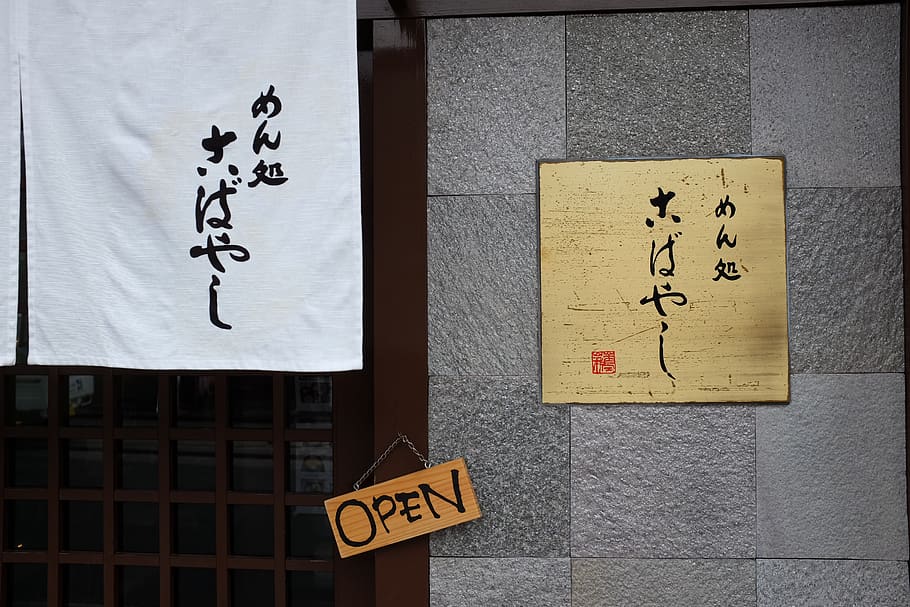 めん処
こばやし
めん処
こばやし
OPEN